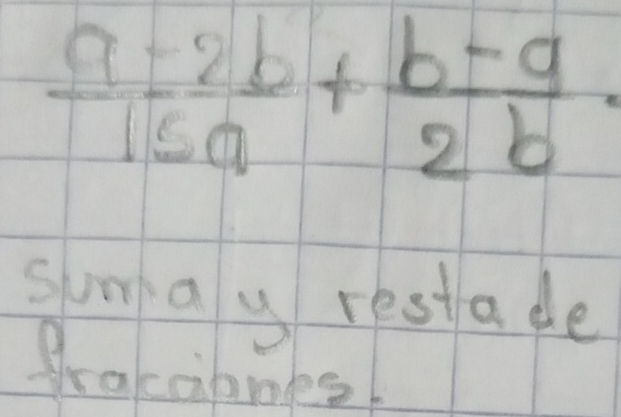 a-2b/15a + b-a/2b.
suma y resta de
fracciones.